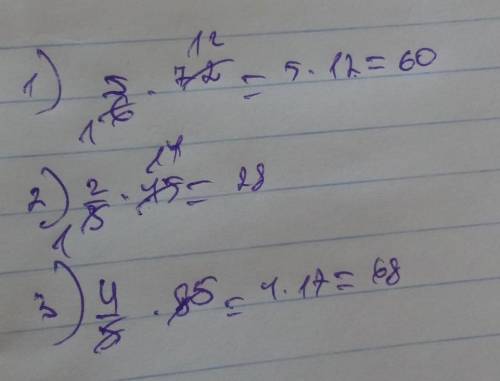 12
1) 5/6 · 72 = 5 · 12 = 60
1
14
2) 2/5 · 75 = 28
1
3) 4/5 · 85 = 4 · 17 = 68